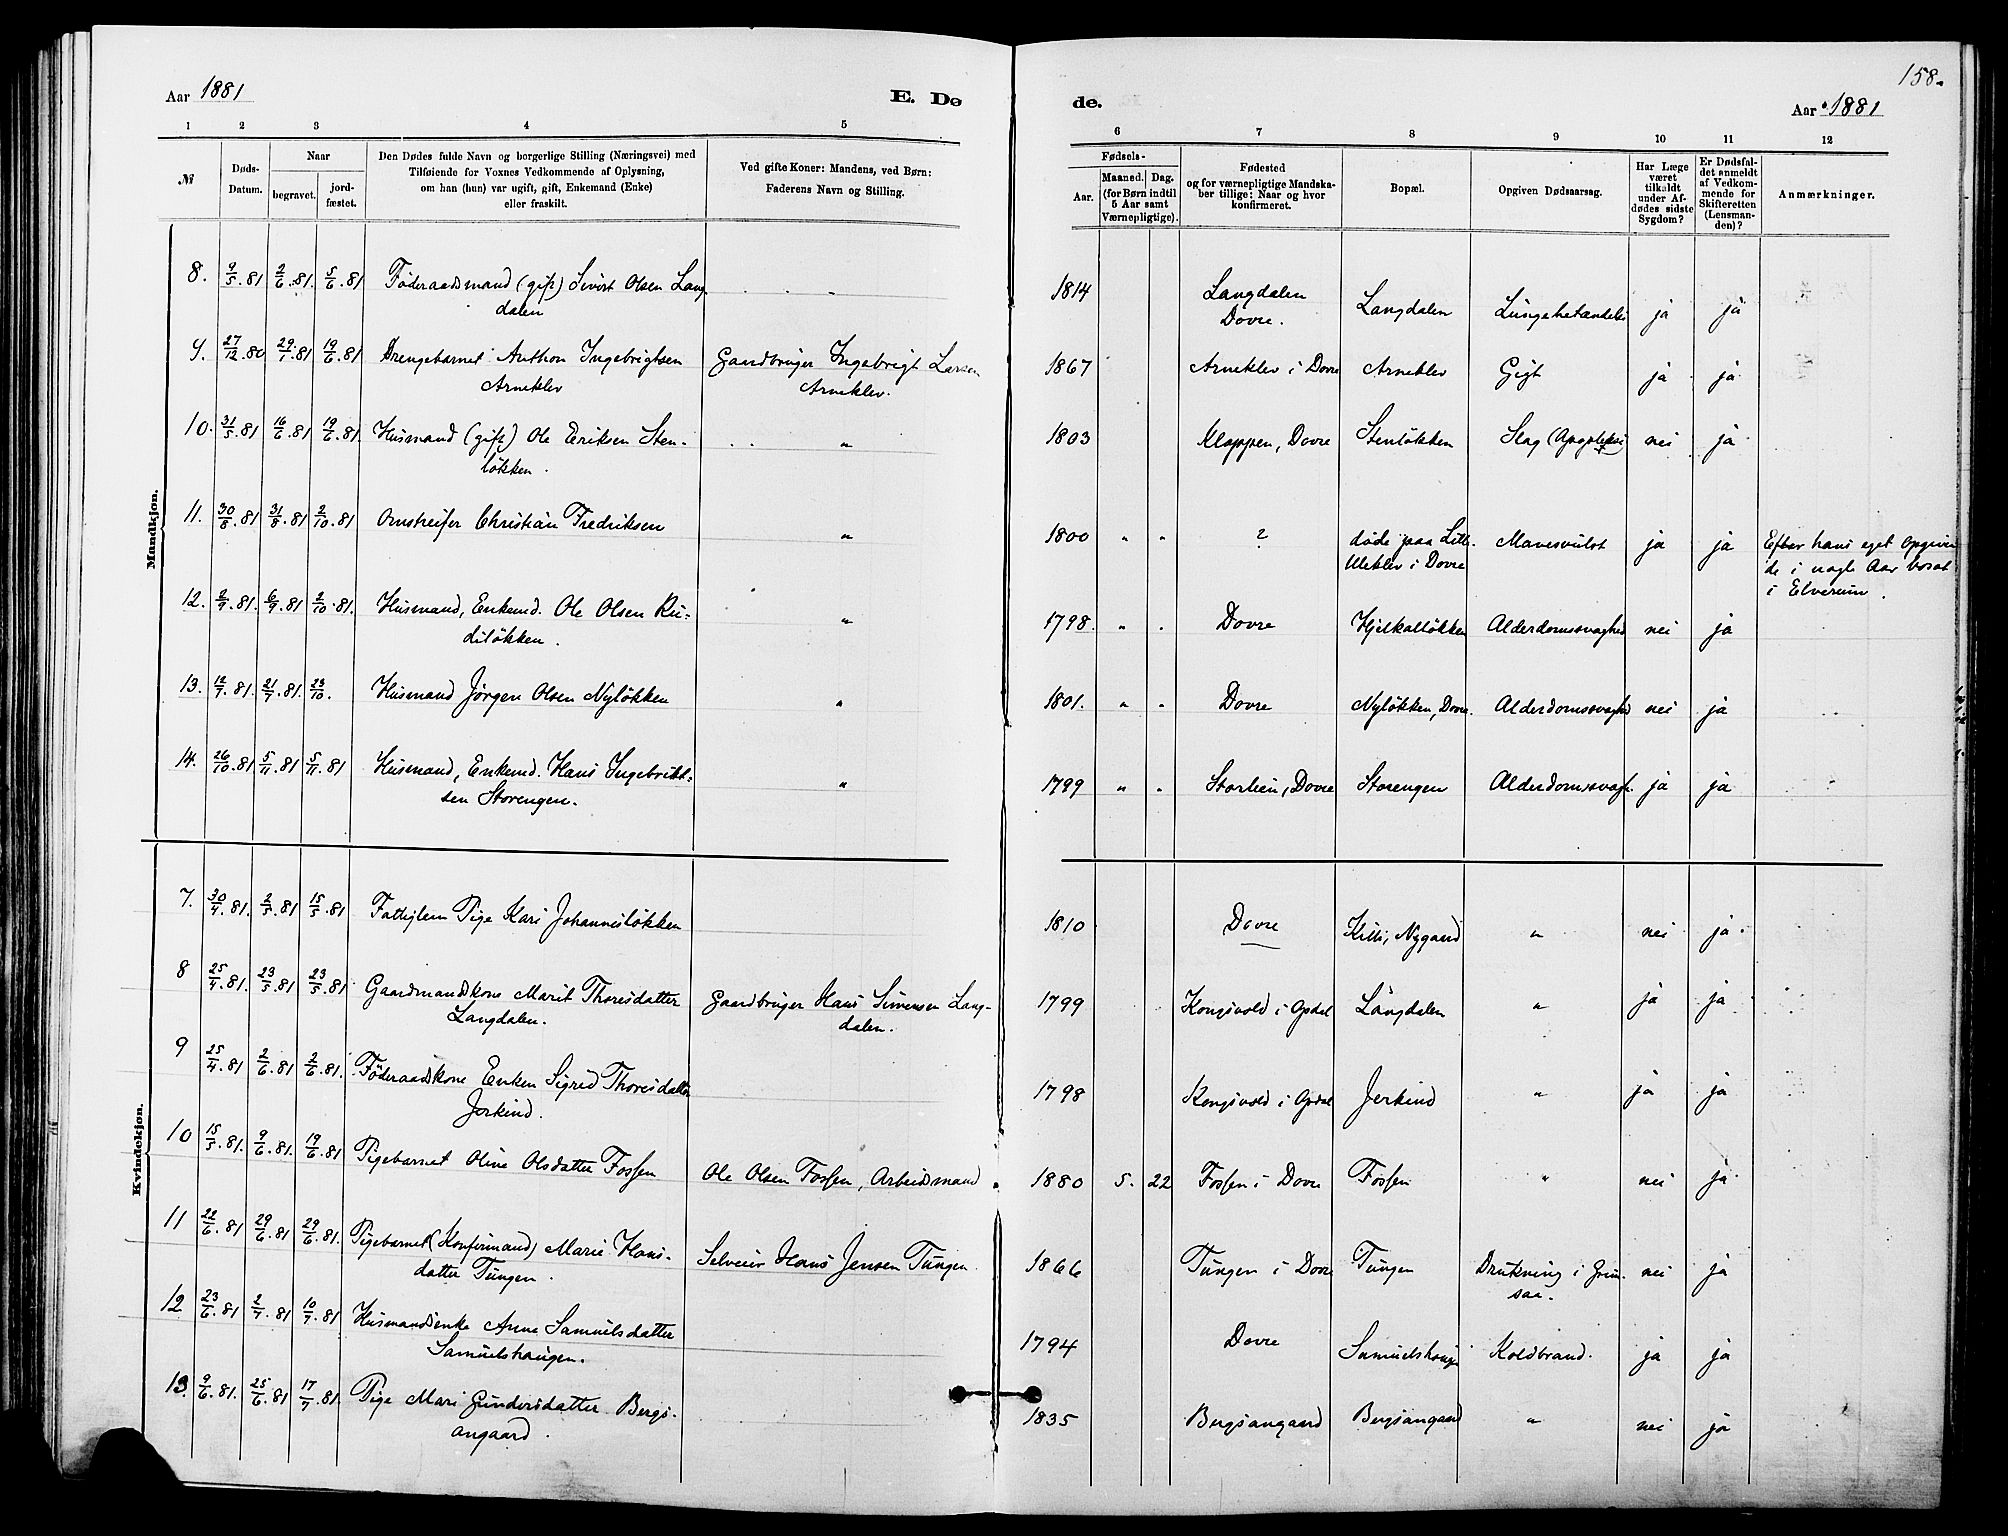 158.
Aar 1881
E. Dø
de.
Aar 1881
1 2 3 4 5
6 7 8 9 10 11 12
№
Døds-
Datum.
Naar
begravet.
jord-
fæstet.
Den Dødes fulde Navn og borgerlige Stilling (Næringsvei) med
Tilføiende for Voxnes Vedkommende af Oplysning,
om han (hun) var ugift, gift, Enkemand (Enke)
eller fraskilt.
Ved gifte Koner: Mandens, ved Børn:
Faderens Navn og Stilling.
Fødsels-
Aar.
Maaned. Dag.
(for Børn indtil
5 Aar samt
Værnepligtige).
Fødested
og for værnepligtige Mandska-
ber tillige: Naar og hvor
konfirmeret.
Bopæl.
Opgiven Dødsaarsag.
Har Læge
været
tilkaldt
under Af-
dødes sidste
Sygdom?
Er Dødsfal-
det anmeldt
af Vedkom-
mende for
Skifteretten
(Lensman-
den)?
Anmærkninger.
Mandkjøn.
8. 9/5.81 2/6.81 5/6.81 Föderaadsmand (gift) Sivert Olsen Lang- 1814 Langdalen Langdalen Lungebetændelse ja ja
dalen Dovre.
9. 27/12.80 29/1.81 19/6.81 Drengebarnet Anthon Ingebrigtsen Gaardbruger Ingebrigt Larsen 1867 Arneklev i Dovre Arneklev Gigt ja ja
Arneklev Arneklev.
10. 31/5.81 16/6.81 19/6.81 Husmand (gift) Ole Eriksen Sten- " 1803 Kloppen, Dovre Stenløkken Slag nei ja
løkken.
11. 30/8.81 31/8.81 2/10.81 Omstreifer Christian Fredriksen " 1800 " " ? døde paa Litle- Mavesvulst ja ja Efter hans eget Opgiven-
Uleklev i Dovre de i nogle Aar bosat
i Elverum.
12. 2/9.81 6/9.81 2/10.81 Husmand, Enkemd. Ole Olsen Ru- " 1798. " " Dovre Hjelkalløkken Alderdomssvaghed nei ja
diløkken.
13. 12/7.81 21/7.81 23/10. Husmand Jørgen Olsen Nyløkken " 1801. " " Dovre Nyløkken, Dovre. Alderdomssvaghed nei ja
14. 26/10.81 5/11.81 5/11.81 Husmand, Enkemd. Hans Ingebrikt- " 1799 " " Storlien, Dovre Storengen Alderdomssvagh. ja ja
sen Storengen.
Kvindekjøn.
7. 30/4.81. 2/5.81 15/5.81 Fattiglem Pige Kari Johannesløkken 1810 Dovre Killi, Nygaard " nei ja
8 25/4.81. 23/5.81 23/5.81 Gaardmandskone Marit Thoresdatter Gaardbruger Hans Simensen Lang- 1799 Kongsvold i Opdal Langdalen " ja ja
Langdalen. dalen.
9 25/4.81 2/6.81 2/6.81. Föderaadskone Enken Sigrid Thoresdatter 1798 Kongsvold i Opdal Jerkind " ja ja
Jerkind.
10 15/5.81. 9/6.81. 19/6.81 Pigebarnet Oline Olsdatter Fossen Ole Olsen Fossen, Arbeidsmand 1880 5. 22 Fossen i Dovre Fossen " nei ja
11 22/6.81 29/6.81 29/6.81. Pigebarnet (Konfirmand) Marie Hans- Selveier Hans Jensen Tungen 1866 Tungen i Dovre Tungen Drukning i Grim- nei ja
datter Tungen. saa.
12 23/6.81 2/7.81 10/7.81 Husmandsenke Anne Samuelsdatter 1794 Dovre Samuelshaugen Koldbrand. ja ja
Samuelshaugen.
13. 9/6.81. 25/6.81 17/7.81. Pige Mari Gundersdatter Bergs- 1835 Bergsangaard Bergsangaard " nei ja
angaard.